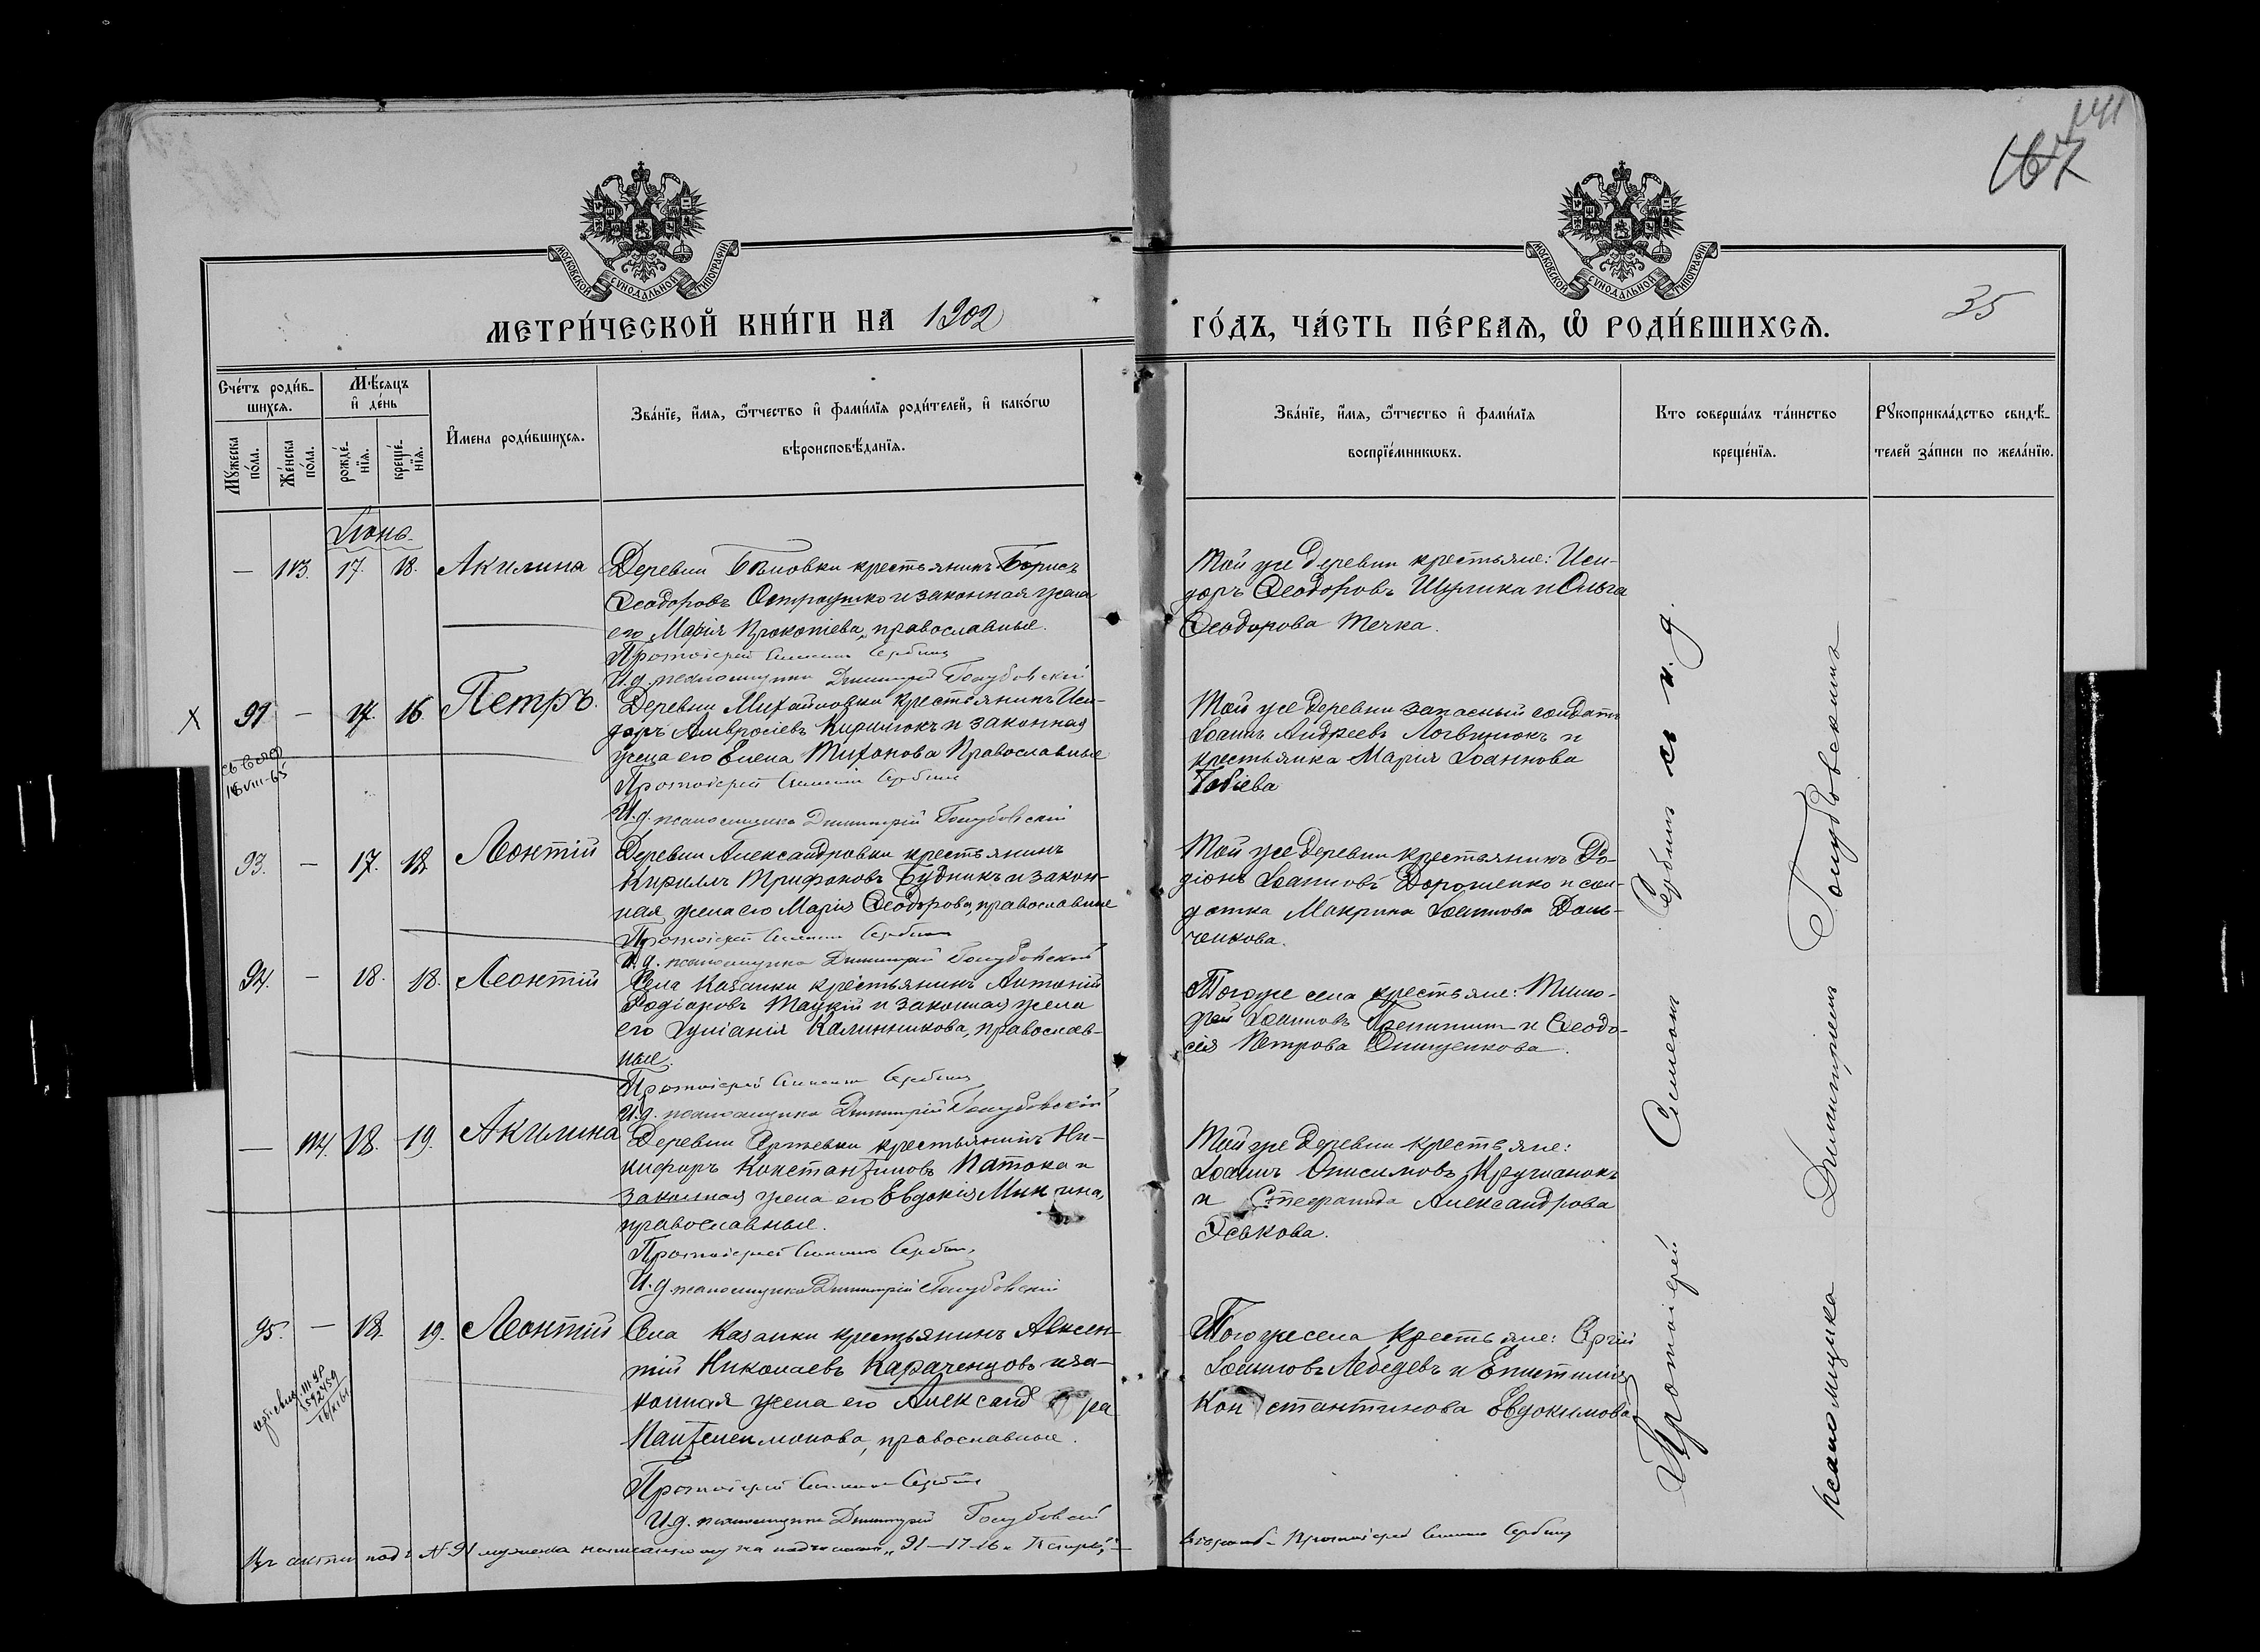 141
167
МОСКОВСКОЙ СѴНОДАЛЬНОЙ ТИПОГРАФІИ
МОСКОВСКОЙ СѴНОДАЛЬНОЙ ТИПОГРАФІИ
МЕТРИ́ЧЕСКОЙ КНИ́ГИ НА 1902
ГО́ДЪ, ЧА́СТЬ ПЕ́РВАЯ, Ѡ РОДИ́ВШИХСЯ.
35
Сче́тъ роди́в-
шихся.
Мѣ́сяцъ
и де́нь
Му́жеска
по́ла.
Же́нска
по́ла.
рожде́-
нія.
креще́-
нія.
И́мена роди́вшихся.
Зва́ніе, и́мя, ѻ́тчество и фами́лія роди́телей, и како́гѡ
вѣроисповѣ́данія.
Зва́ніе, и́мя, ѻ́тчество и фами́лія
воспріе́мникѡвъ.
Кто соверша́лъ та́инство
креще́нія.
Рукоприкла́дство свидѣ́-
телей за́писи по жела́нію.
Іюнь
— 113. 17. 18. Акилина
Деревни Бѣловки крестьянинъ Борисъ
Ѳеодоровъ Остроушко и законная жена
его Марія Прокопіева, православные.
Протоіерей Симеонъ Сербинъ
И.д. псаломщика Димитрій Голубовскій
Той же деревни крестьяне: Иси-
доръ Ѳеодоровъ Шулика и Ольга
Ѳеодорова Течка.
X 91 — 17. 16. Петръ.
Деревни Михайловки крестьянинъ Иси-
доръ Амвросіевъ Кирилюкъ и законная
жена его Елена Тихонова Православные
Протоіерей Симеонъ Сербинъ
И.д. псаломщика Димитрій Голубовскій
16 VIII-65
Той же деревни запасный солдатъ
Іоаннъ Андреевъ Логвинюкъ и
крестьянка Марія Іоаннова
93. — 17. 18. Леонтій
Деревни Александровки крестьянинъ
Кириллъ Трифоновъ Будникъ и закон-
ная жена его Марія Ѳеодорова, православные
Протоіерей Симеонъ Сербинъ
И.д. псаломщика Димитрій Голубовскій
Той же деревни крестьянинъ Ро-
діонъ Іоанновъ Дорошенко и сол-
датка Макрина Іоаннова Даль-
ченкова.
94. — 18. 18. Леонтій
Села Казанки крестьянинъ Антоній
Родіоновъ Тацкій и законная жена
его Іуліанія Калинникова, православ-
ные.
Протоіерей Симеонъ Сербинъ
И.д. псаломщика Димитрій Голубовскій
Того же села крестьяне: Тимо-
фей Іоанновъ и Ѳеодо-
сія Петрова Онищенкова.
— 114. 18. 19. Акилина
Деревни Сергѣевки крестьянинъ Ни-
кифоръ Константиновъ Патока и
законная жена его Евдокія Минина,
православные.
Протоіерей Симеонъ Сербинъ
И.д. псаломщика Димитрій Голубовскій
Той же деревни крестьяне:
Іоаннъ Онисимовъ Кругланокъ
и Стефанида Александрова
Оськова.
95. — 18. 19. Леонтій
Села Казанки крестьянинъ Авксен-
тій Николаевъ Караченцовъ и за-
конная жена его Александра
Пантелеимонова, православные.
Протоіерей Симеонъ Сербинъ
И.д. псаломщика Димитрій Голубовскій
Того же села крестьяне: Сергій
Іоанновъ Лебедевъ и Епистимія
Константинова Евдокимова
Протоіерей Симеонъ Сербинъ съ и. д.
псаломщика Димитріемъ Голубовскимъ
Въ актѣ подъ № 91 мужска написанному на подчисткѣ „91—17-16 Петръ“
Протоіерей Симеонъ Сербинъ